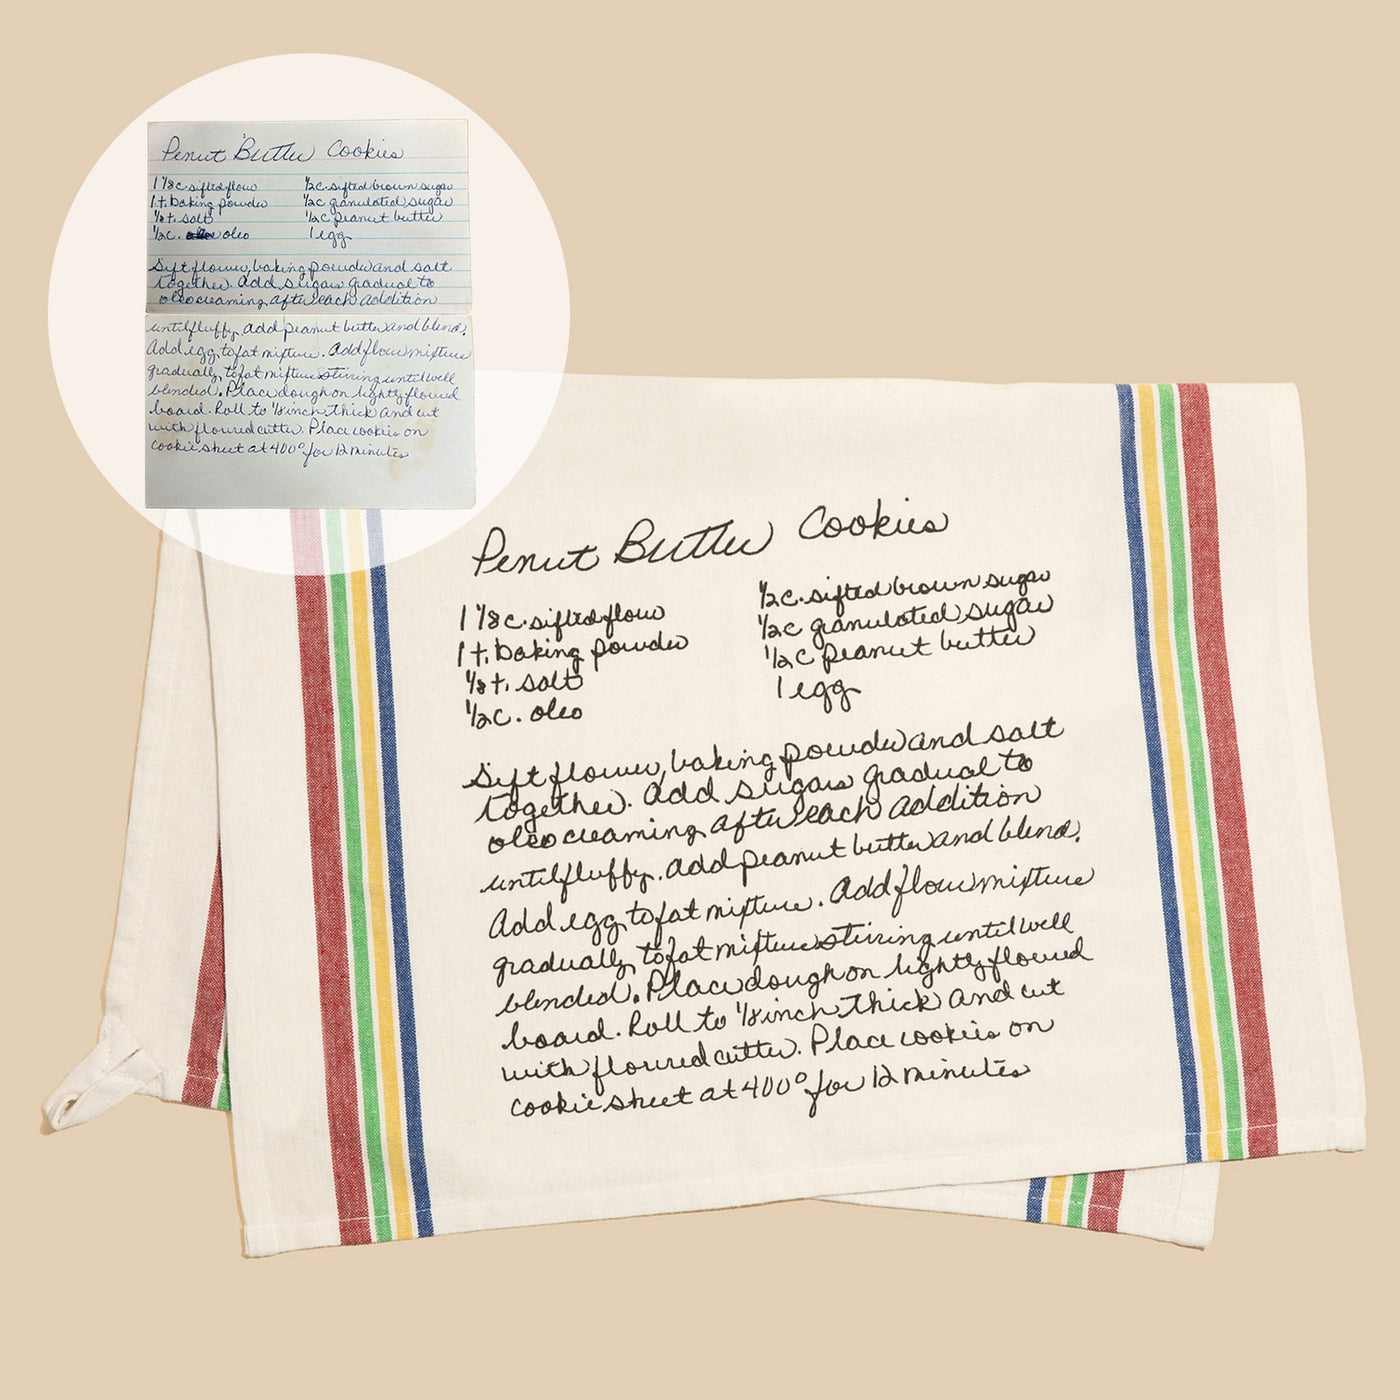 Penut Butter Cookies
1 1/8 c. sifted flour
1 t. baking powder
1/8 t. salt
1/2 c. oleo
1/2 c. sifted brown sugar
1/2 c granulated sugar
1/2 c peanut butter
1 egg
Sift flower, baking powder and salt
together. Add sugars gradual to
oleo creaming after each addition
until fluffy. Add peanut butter and blend.
Add egg to fat mixture. Add flour mixture
gradually to fat mixture stiring until well
blended. Place dough on lightly floured
board. Roll to 1/8 inch thick and cut
with floured cutter. Place cookies on
cookie sheet at 400° for 12 minutes
Penut Butter Cookies
1 1/8 c. sifted flour
1 t. baking powder
1/8 t. salt
1/2 c. oleo
1/2 c. sifted brown sugar
1/2 c granulated sugar
1/2 c peanut butter
1 egg
Sift flower, baking powder and salt
together. Add sugars gradual to
oleo creaming after each addition
until fluffy. Add peanut butter and blend.
Add egg to fat mixture. Add flour mixture
gradually to fat mixture stiring until well
blended. Place dough on lightly floured
board. Roll to 1/8 inch thick and cut
with floured cutter. Place cookies on
cookie sheet at 400° for 12 minutes